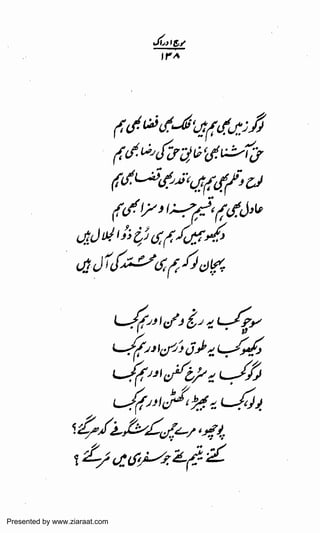 موج ادراک
۱۳۸
لوگو زمیں بھی ہم ہیں، فلک بھی، فضا بھی ہم
حق آشنا بھی، حق کی رضا بھی ہم
لوح و قلم بھی ہم ہیں، قدر بھی، قضا بھی ہم
عادل بھی ہم، قسیمِ جزا و سزا بھی ہم
دیکھو ہمیں کہ ہم ہی رخِ ذوالجلال ہیں
پہچان لو کہ ہم ہی محمدؐ کی آل ہیں
سوچو یہ رنج و محن اور ہم
دیکھو یہ طوق و رسن اور ہم
یہ سرخ کفن اور ہم
بولو یہ بھیڑ، گھٹن اور ہم
پوچھو، مرے چمن کے شگوفے کدھر گئے؟
کتنے یتیم تھے جو سفر ہی میں مر گئے؟
Presented by www.ziaraat.com